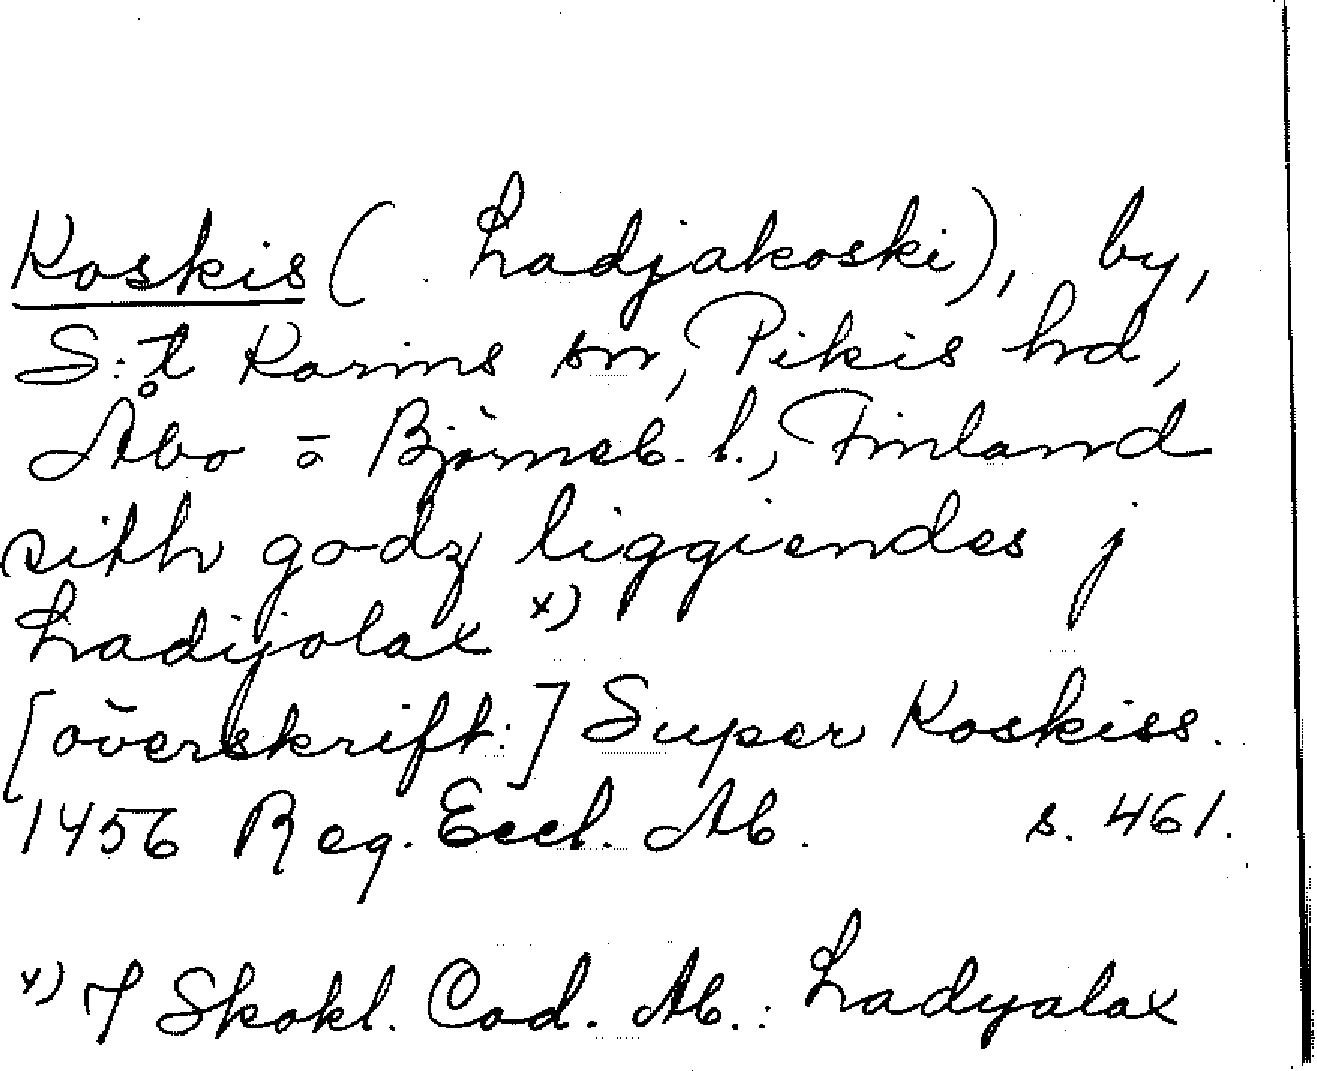 Koskis ( Ladjakoski), by,
S:t Karins sn, Pikis hd,
Åbo = o Björneb. l., Finland
sith godz liggiendes j
Ladijolax x)
[överskrift:] Super Koskiss.
1456 Reg. Eccl. Ab. s. 461.
x) I Skokl. Cod. Ab.: Ladyalax